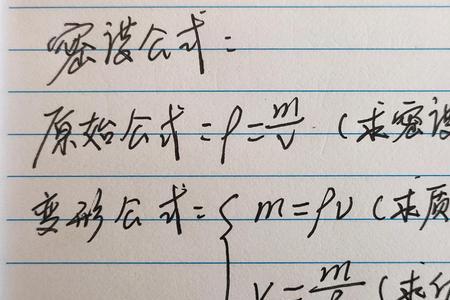 密度公式：
原始公式：ρ=m/v （求密度
变形公式：{ m=ρv（求质
v=m/ρ（求体